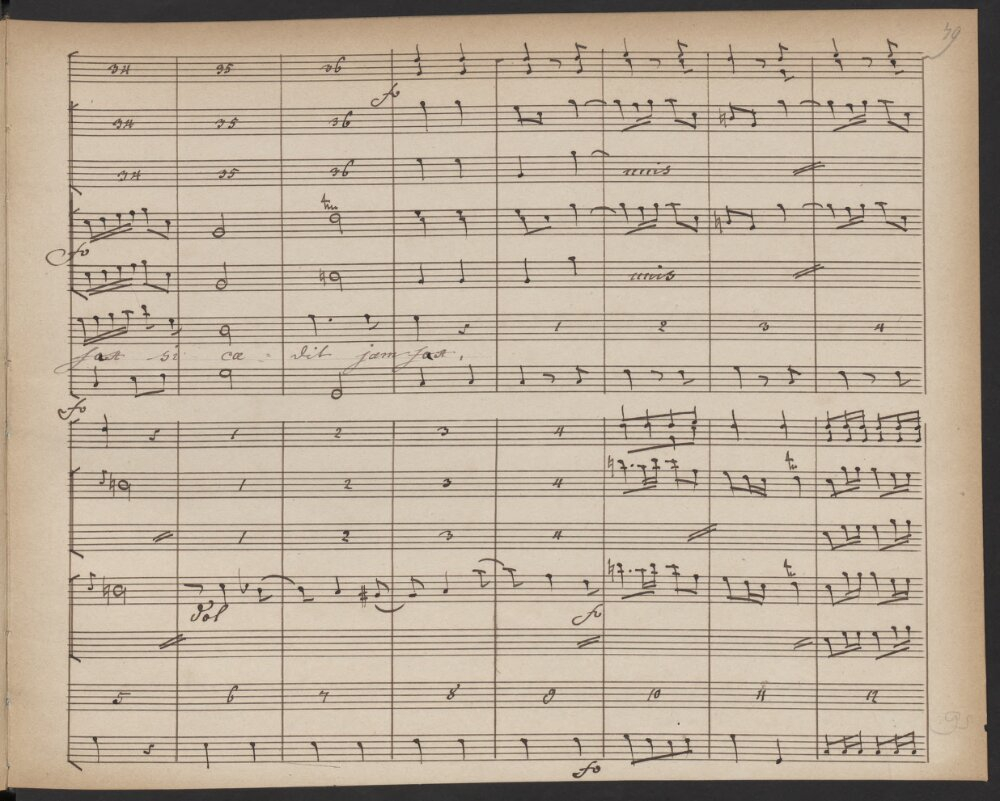 39
34 35 36
fo
34 35 36
34 35 36 unis
tr
fo
unis
5 1 2 3 4
fast si cæ - dit jam fast,
fo
5 1 2 3 4
1 2 3 4
tr
1 2 3 4
tr
Dol fo
5 6 7 8 9 10 11 12
5
fo